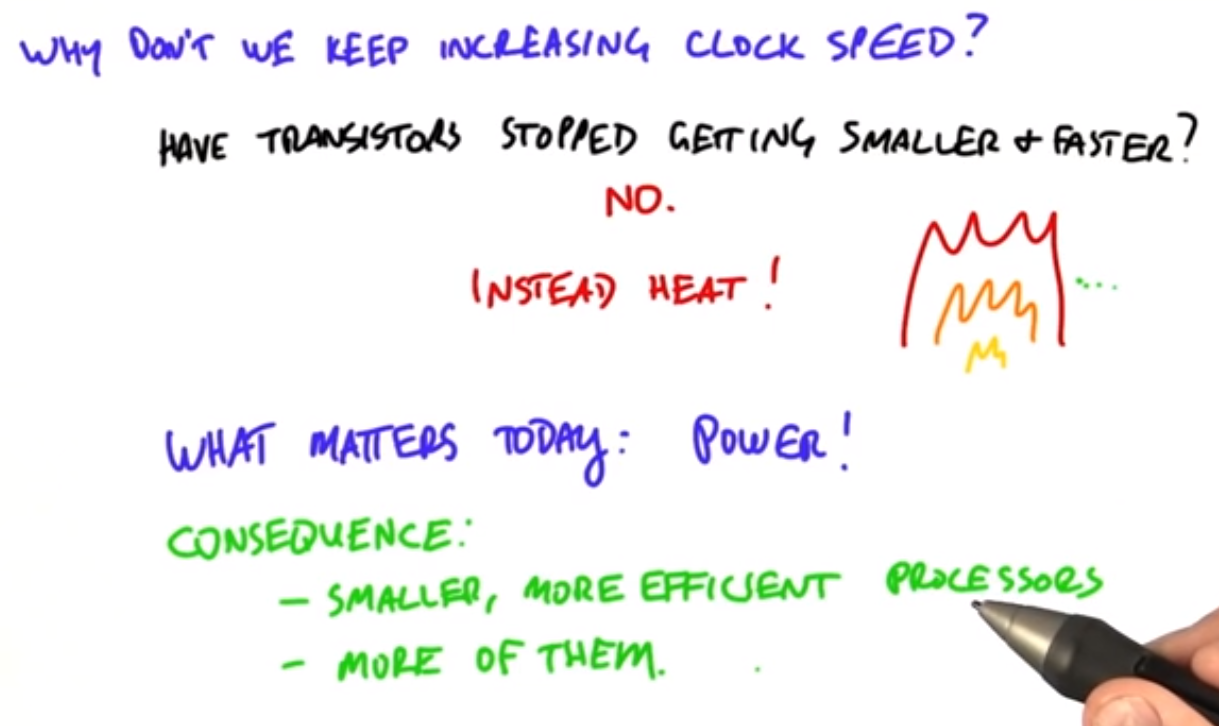 WHY DON'T WE KEEP INCREASING CLOCK SPEED?
HAVE TRANSISTORS STOPPED GETTING SMALLER + FASTER?
NO.
INSTEAD HEAT!
WHAT MATTERS TODAY: POWER!
CONSEQUENCE:
– SMALLER, MORE EFFICIENT PROCESSORS
– MORE OF THEM.